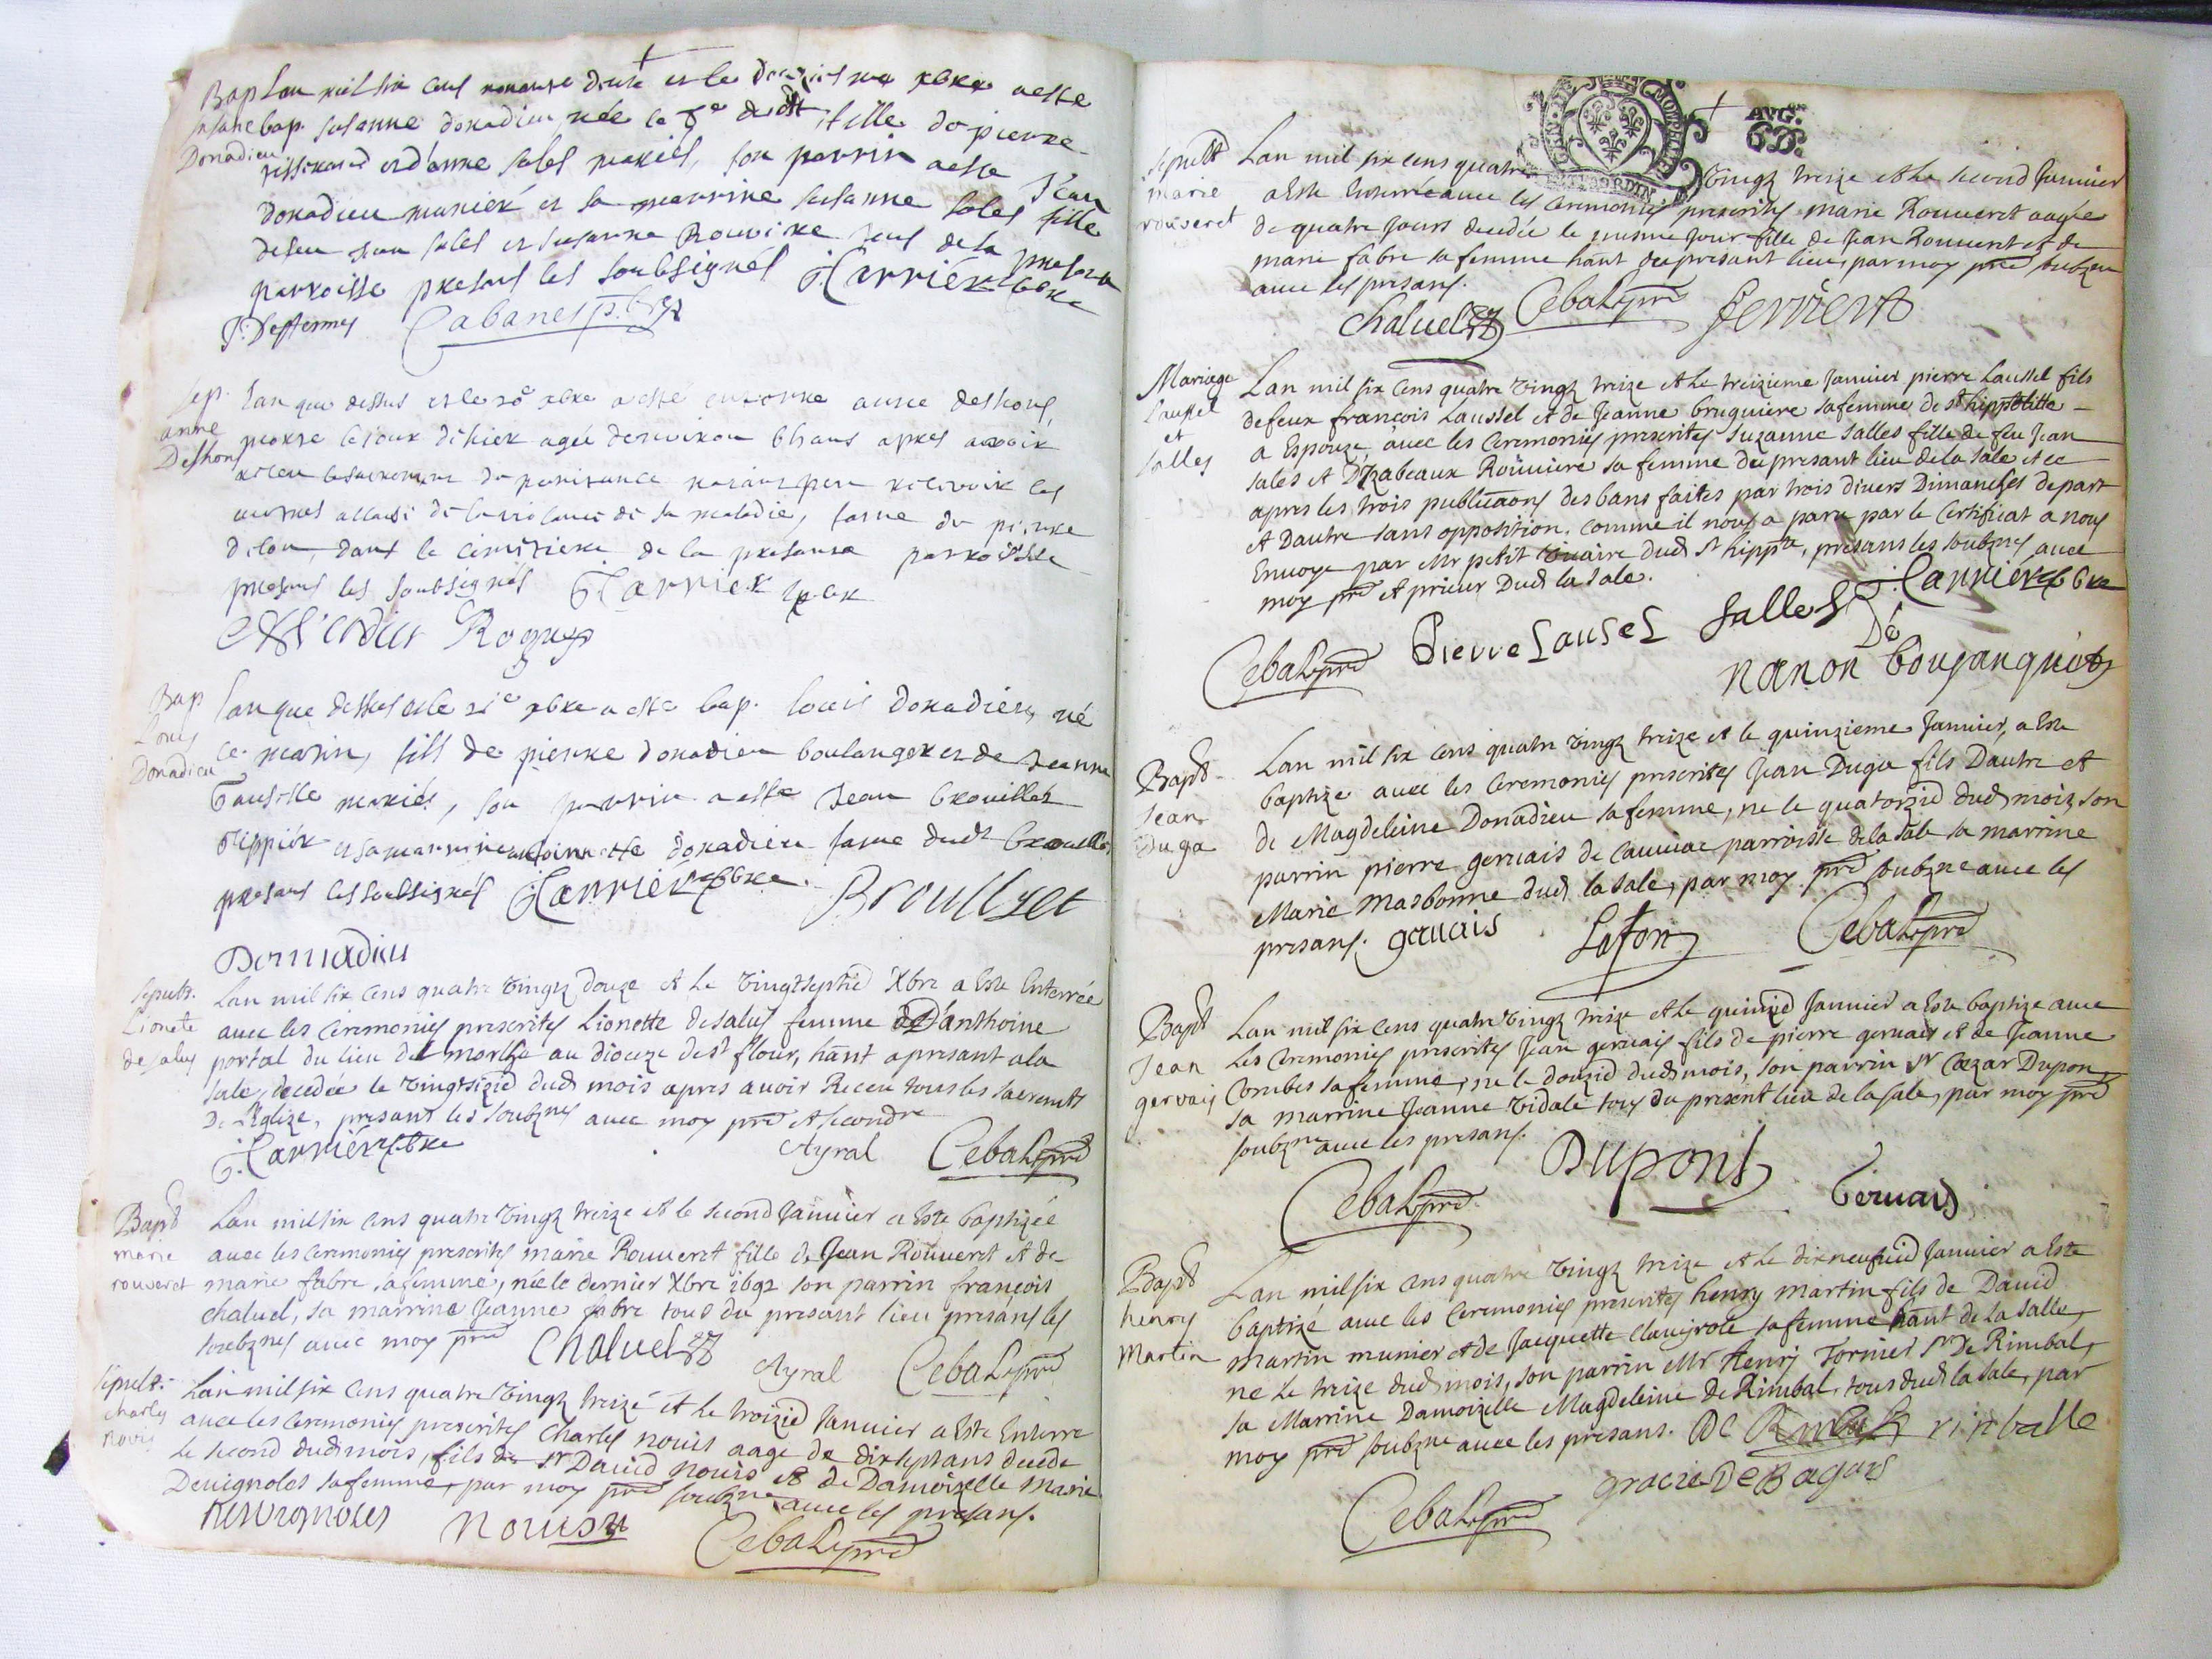 Bap Lan mil six cens nonante deux et le xbre a esté
susane bap. susanne donadieu née le dudt fille de pierre
Donadieu tisseran et d'anne sales mariés, son parrin a esté Jean
donadieu munier et sa marrine susanne sales fille
de feu jean sales et susanne Rouvire tous de la presente
parroisse presens les soubsignés Carrier pbre
P. Desfermes Cabanes
Sep. lan que dessus et le 20e xbre a esté enterrée anne deshons,
anne morte le jour d'hier agée denviron ans apres avoir
Deshons receu le sacrement de penitance naiant peu recevoir les
autres a cause de la violance de sa maladie, fame de pierre
dans le cimitiere de la presente parroisse
presens les soubsignés Carrier pbre
Roques
Bap lan que dessus et le 21e xbre a esté bap. louis donadieu, né
Louis ce matin, fils de pierre donadieu boulanger et de Jeanne
Donadieu mariés, son parrin a esté Jean brouillet
et sa marrine antoinette donadieu fame dudt brouillet
presens les soubsignés Carrier pbre. Brouillet
Donnadieu
sepult. Lan mil six cens quatre vingtz douze et le vingtseptie Xbre a este Enterrée
Lionete avec les ceremonies prescrites Lionette desalus femme d'anthoine
desalus portal du lieu de au dioceze de st flour, hant apresant a la
sale, decedée le vingtsizie dud mois apres avoir Receu tous les sacremts
De l'Eglize, presant les soubznes avec moy pre et secondre
Carrier pbre Ayral Cebal pre
Bapt Lan mil six cens quatre vingtz treize et le second Janvier a este baptizée
marie avec les ceremonies prescrites marie Rouveret fille de Jean Rouveret et de
rouveret marie fabre sa femme, née le dernier Xbre 1692 son parrin françois
chaluel, sa marrine Jeanne fabre tous du presant lieu presans les
soubznes avec moy pre Chaluel Ayral Cebal pre
sepult. Lan mil six cens quatre vingtz treize et le troizie Janvier a este Enterre
charles avec les ceremonies prescrites Charles nouis aage de dix sept ans decede
novis le second dud mois, fils de sr David nouis et de Damoizelle marie
Devignoles sa femme, par moy pre soubzne avec les presans.
Devignoles nouis Cebal pre
AVG.on
6D.
sepult Lan mil six cens quatre vingtz treize et le second Janvier
marie a este Enterrée avec les ceremonies prescrites marie Rouveret aagée
rouveret de quatre jours decedée le mesme jour fille de Jean Rouveret et de
marie fabre sa femme hant du presant lieu, par moy pre soubzne
avec les presans.
chaluel Cebal pre ferrier
Mariage Lan mil six cens quatre vingtz treize et le treizieme Janvier pierre Laussel fils
Laussel de feux françois Laussel et de Jeanne bruguiere sa femme de st hippolitte
et a Espouzé avec les ceremonies prescrites Suzanne salles fille de feu Jean
salles sales et D'Yzabeaux Rouviere sa femme du presant lieu de la sale et ce
apres les trois publicaons des bans faites par trois divers Dimanches de part
et Dautre sans opposition. comme il nous a paru par le certificat a nous
Envoye par Mr petit vicaire dud st hippte, presans les soubznes avec
moy pre et prieur Dud la sale. Carrier pbre
Cebal pre Pierre Lausel Salles
De
nanon boujanquet
Bapt Lan mil six cens quatre vingtz treize et le quinzieme Janvier, a este
Jean baptize avec les ceremonies prescrites Jean Duga fils Dautre et
duga de Magdeleine Donadieu sa femme, ne le quatorzie dud mois, son
parrin pierre gervais de cauviac parroisse de la sale sa marrine
Marie Masbonne dud la sale, par moy pre soubzne avec les
presans. gervais Lafon Cebal pre
Bapt Lan mil six cens quatre vingtz treize et le quinzie Janvier a este baptize avec
Jean les ceremonies prescrites Jean gervais fils de pierre gervais et de Jeanne
gervais Combes sa femme, ne le douzie dud mois, son parrin sr Cezar Dupon,
sa marrine Jeanne vidale tous du present lieu de la sale, par moy pre
soubzne avec les presans.
Cebal pre Dupont Gervais
Bapt Lan mil six cens quatre vingtz treize et le dixneufvie Janvier a este
henry baptizé avec les ceremonies prescrites henry martin fils de David
Martin martin munier et de Jacquette Clauzrole sa femme hant de la salle,
ne le treize dud mois, son parrin Mr Henry Tornier sr De Rimbal,
sa Marrine Damoizelle Magdeleine de Rimbal, tous dud la sale, par
moy pre soubzne avec les presans. De Rimbal rinballe
Cebal pre gracie De Bagars